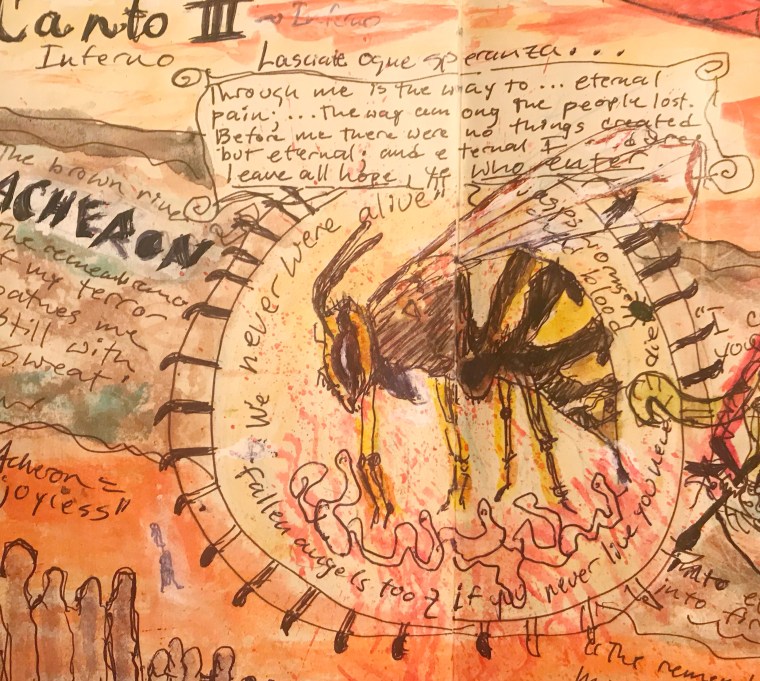 Canto III
Inferno
Inferno
Lasciate ogne speranza...
Through me is the way to ... eternal
pain; ... the way among the people lost.
Before me there were no things created
but eternal; and eternal I
leave all hope, ye who enter
The brown river
ACHERON
The remembrance
of my terror
bathes me
still with
Sweat.
Acheron =
joyless"
"We never were alive"
Fallen angels too
if you never live you never die
wasps worms
blood
"I
you
into
into
"The remem